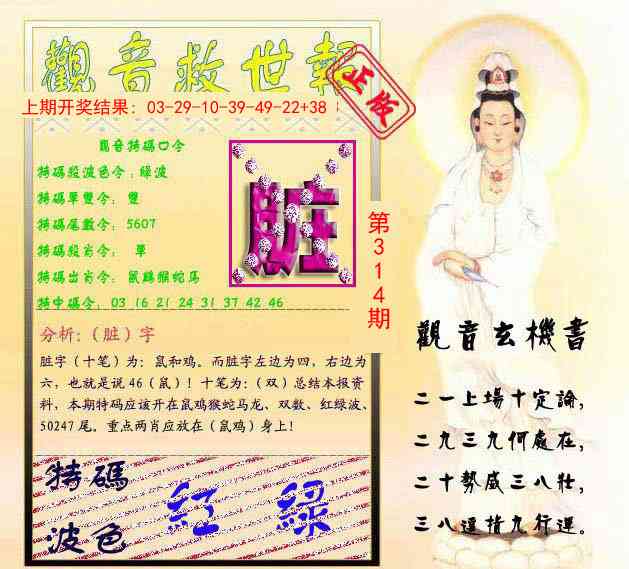 觀音救世報
正版
上期开奖结果：03-29-10-39-49-22+38
觀音特碼口令
特碼段波色令：绿波
特碼單雙令：雙
特碼尾數令：5607
特碼段肖令：單
特碼出肖令：鼠鷄猴蛇马
特中碼令：03 16 21 24 31 37 42 46
脏
第314期
分析：（脏）字
脏字（十笔）为：鼠和鸡。而脏字左边为四，右边为
六，也就是说46（鼠）！十笔为：（双）总结本报资
料，本期特码应该开在鼠鸡猴蛇马龙、双数、红绿波、
50247尾。重点两肖应放在（鼠鸡）身上！
特碼
波色
紅 綠
觀音玄機書
二一上場十定論，
二九三九何處在，
二十勢威三八壯，
三八運指九行運。